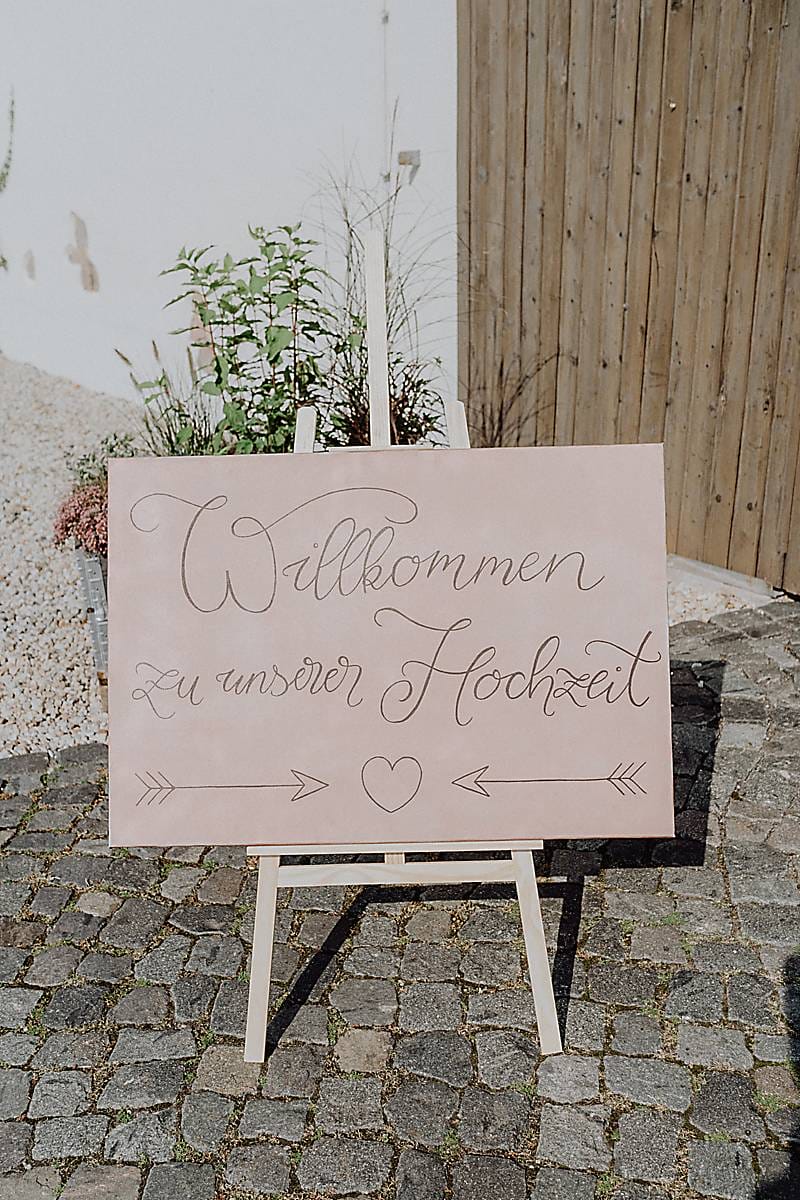 Willkommen
zu unserer Hochzeit